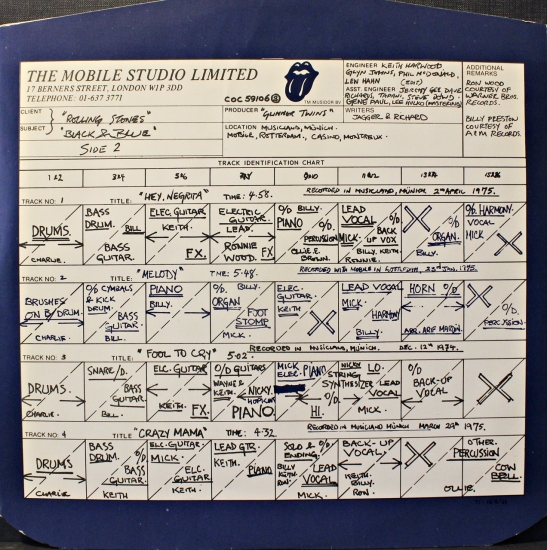 THE MOBILE STUDIO LIMITED
17 BERNERS STREET, LONDON W1P 3DD
TELEPHONE: 01-637 3771
COC 59106
TM MUSIDOR BV
ENGINEER KEITH HARWOOD
GLYN JOHNS, PHIL McDONALD,
LEW HAHN
ASST. ENGINEER JEREMY GEE DAVE
RICHARDS, TAPANI,
GENE PAUL, LEE HULKO (MASTERING)
WRITERS
JAGGER & RICHARD
ADDITIONAL
REMARKS
RON WOOD
COURTESY OF
WARNER BROS.
RECORDS.
BILLY PRESTON
COURTESY OF
A&M RECORDS.
CLIENT "ROLLING STONES"
SUBJECT "BLACK & BLUE"
SIDE 2
PRODUCER "GLIMMER TWINS"
LOCATION MUSICLAND, MÜNICH.
MOBILE, ROTTERDAM, CASINO, MONTREUX.
TRACK IDENTIFICATION CHART
1&2 3&4 5&6 7&8 9&10 11&12 13&14 15&16
TRACK NO: 1 TITLE: "HEY, NEGRITA" TIME: 4-58. RECORDED IN MUSICLAND, MÜNICH 2nd APRIL 1975.
DRUMS.
CHARLIE.
BASS
DRUM. BILL
BASS
GUITAR.
ELEC. GUITAR
KEITH.
FX.
ELECTRIC
GUITAR
LEAD.
RONNIE
WOOD. FX
O/D BILLY.
PIANO
O/D
PERCUSSION
OLLIE E.
BROWN.
LEAD
VOCAL
MICK. O/D
BACK
UP VOX
BILLY, KEITH
RONNIE.
O/D
ORGAN.
BILLY.
O/D HARMONY.
VOCAL
MICK
TRACK NO: 2 TITLE: "MELODY" TIME: 5-48. RECORDED WITH MOBILE IN ROTTERDAM, 23rd JAN. 1975.
BRUSHES
ON B/DRUM
CHARLIE.
O/D CYMBALS
& KICK
DRUM.
BASS
GUITAR.
BILL.
PIANO
BILLY.
O/D BILLY.
ORGAN
FOOT
STOMP
MICK.
ELEC.
GUITAR.
KEITH
LEAD VOCAL
MICK.
HARMONY
BILLY.
HORN O/D
ARR. ARIF MARDIN.
O/D
PERCUSSION.
TRACK NO: 3 TITLE: "FOOL TO CRY" 5-02. RECORDED IN MUSICLAND, MÜNICH. DEC. 12th 1974.
DRUMS.
CHARLIE.
SNARE/D.
BASS
GUITAR
BILL.
ELC. GUITAR
KEITH.
FX.
O/D GUITARS
WAYNE &
KEITH.
NICKY
HOPKINS
PIANO.
MICK
ELEC. PIANO
O/D
HI.
NICKY LO.
STRING
SYNTHESIZER
LEAD
VOCAL
MICK.
O/D
BACK-UP
VOCAL
TRACK NO: 4 TITLE "CRAZY MAMA" TIME: 4-32 RECORDED IN MUSICLAND MÜNICH MARCH 29th 1975.
DRUMS
CHARLIE
BASS
DRUM. O/D
BASS
GUITAR.
KEITH
ELC. GUITAR.
MICK.
ELC.
GUITAR.
KEITH.
LEAD GTR.
KEITH.
PIANO
SOLO &
ENDING.
BILLY
KEITH
RON.
LEAD
VOCAL
MICK.
BACK-UP
VOCAL.
KEITH.
BILLY.
RON.
O/D
OTHER.
PERCUSSION
OLLIE.
COW
BELL.